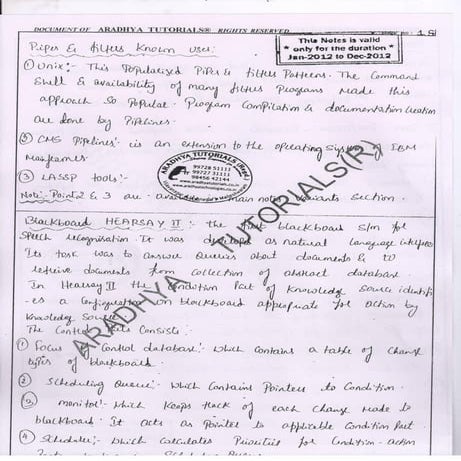 DOCUMENT OF ARADHYA TUTORIALS® RIGHTS RESERVED
18
This Notes is valid
only for the duration
Jan-2012 to Dec-2012
Pipes & filters Known uses:
① Unix:- This Popularized Pipes & filters Patterns. The Command
Shell & availability of many filters Programs made this
approach so Popular. Program Compilation & documentation creation
are done by Pipelines.
② CMS Pipelines:- is an extension to the operating System of IBM
Mainframes
③ LASSP tools:-
Note:- Point 2 & 3 are main notes variants section.
ARADHYA TUTORIALS (Regd)
99728 51111
99727 31111
98456 42144
ARADHYA TUTORIALS(R)
Blackboard HEARSAY II:- the first blackboard s/m for
Speech recognisation. It was developed as natural language
Its task was to answer Queries about documents & to
retrieve documents from collection of abstract database.
In Hearsay II the Condition Part of Knowledge Source
es a Configuration on blackboard appropriate for action by
Knowledge Source
The Control Consists:-
① Focus Control database:- which contains a table of change
types of blackboard.
② Scheduling Queue:- which contains Pointers to Condition.
③ monitor:- which keeps track of each change made to
blackboard. It acts as Pointer to applicable Condition Part.
④ Scheduler:- which calculates Priorities for Condition-action